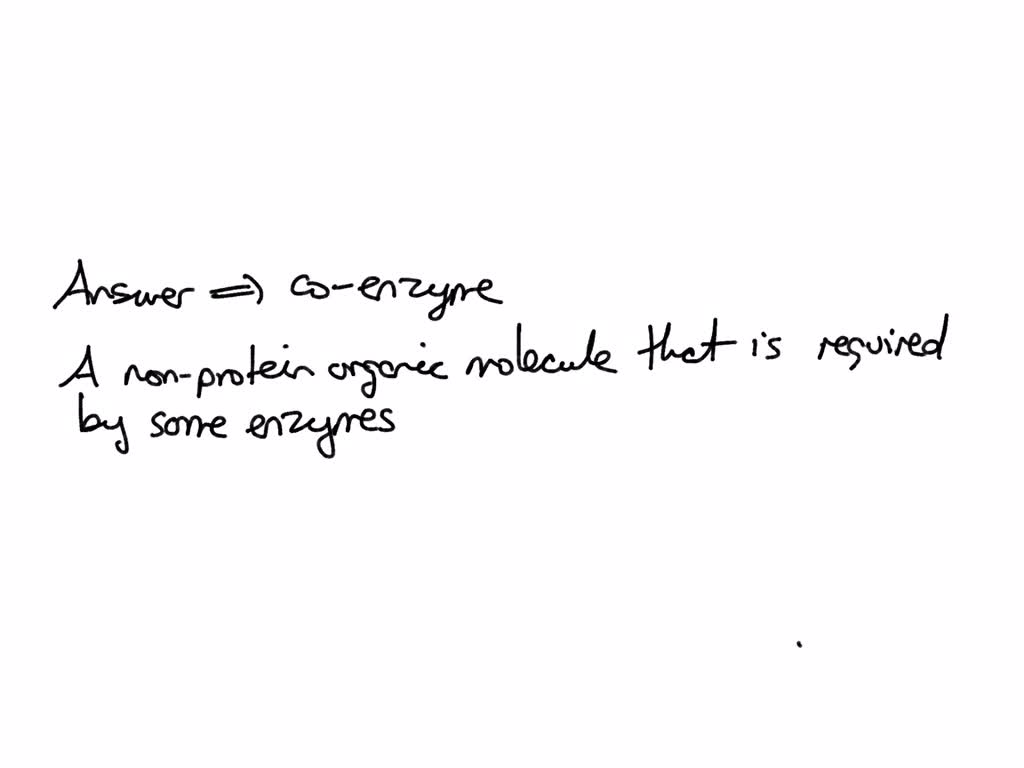 Answer ⇒ co-enzyme
A non-protein organic molecule that is required
by some enzymes